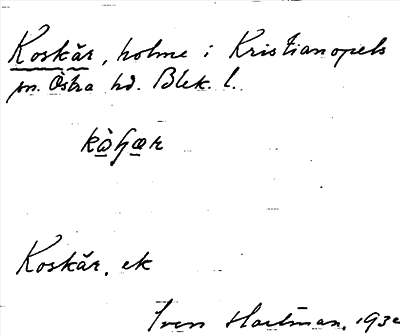 Koskär, holme i Kristianopels
sn. Östra hd. Blek. l.
Koskär, ek
Sven Hartman, 193